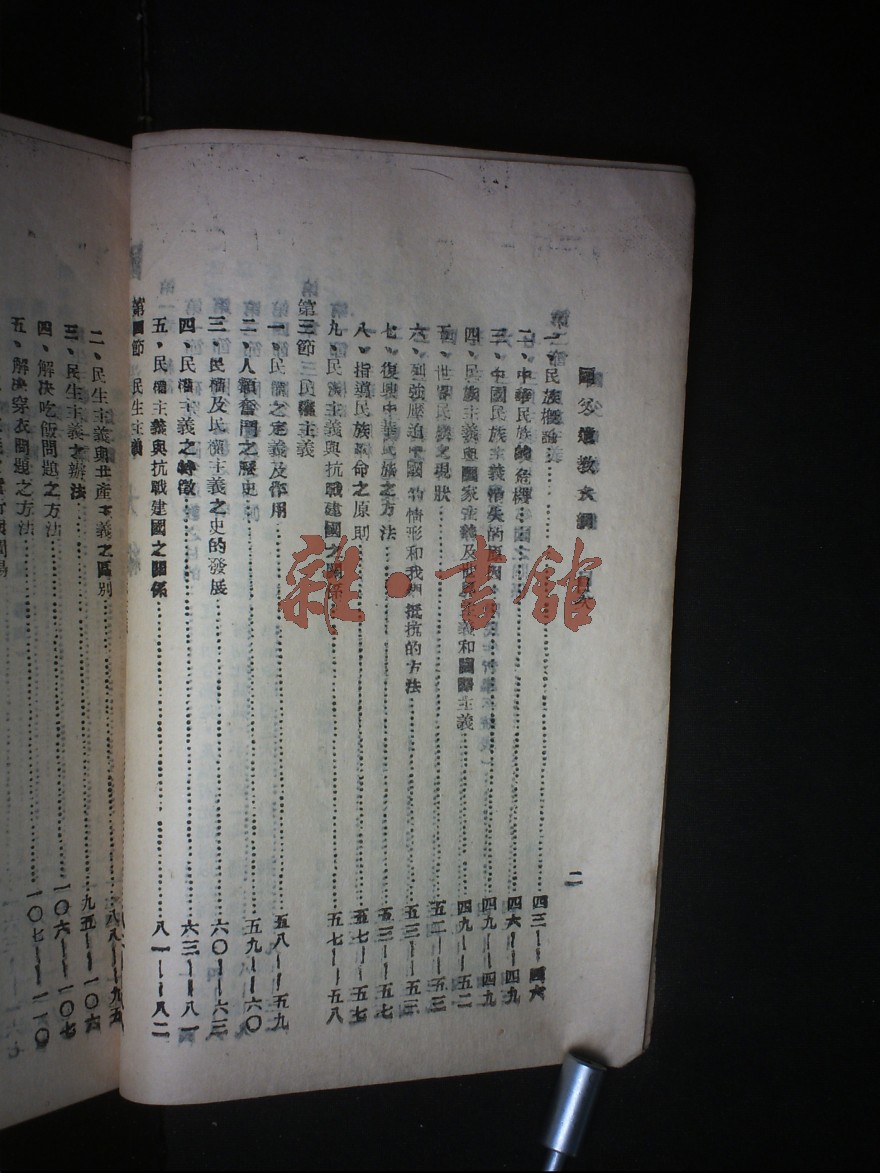 國父遺教大綱 目次
二
一、民族概論……四三——四六
二、中華民族的危機……四六——四九
三、中國民族主義消失的原因……四九——四九
四、民族主義與國家主義及世界主義和國際主義……四九——五二
五、世界民族之現狀……五二——五三
六、列強壓迫中國的情形和我們抵抗的方法……五三——五三
七、復興中華民族之方法……五三——五七
八、指導民族革命之原則……五七——五七
九、民族主義與抗戰建國之關係……五七——五八
第三節 民權主義
一、民權之定義及作用……五八——五九
二、人類奮鬥之歷史……五九——六〇
三、民權及民權主義之史的發展……六〇——六三
四、民權主義之特徵……六三——八一
五、民權主義與抗戰建國之關係……八一——八二
第四節 民生主義
二、民生主義與共產主義之區別……八八——九五
三、民生主義之辦法……九五——一〇六
四、解決吃飯問題之方法……一〇六——一〇七
五、解決穿衣問題之方法……一〇七——一一〇
雜·書館